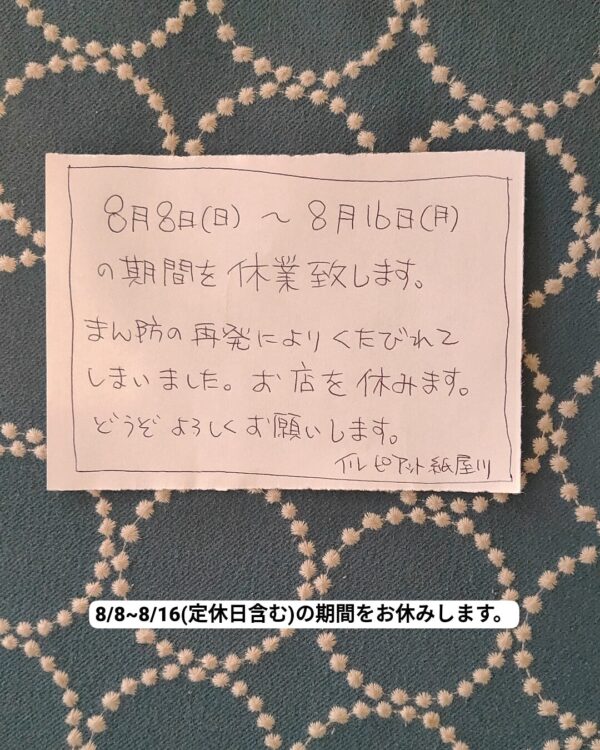 8月8日(日)～8月16日(月)
の期間を休業致します。
まん防の再発によりくたびれて
しまいました。お店を休みます。
どうぞよろしくお願いします。
イル ピアット 紙屋川
8/8~8/16(定休日含む)の期間をお休みします。